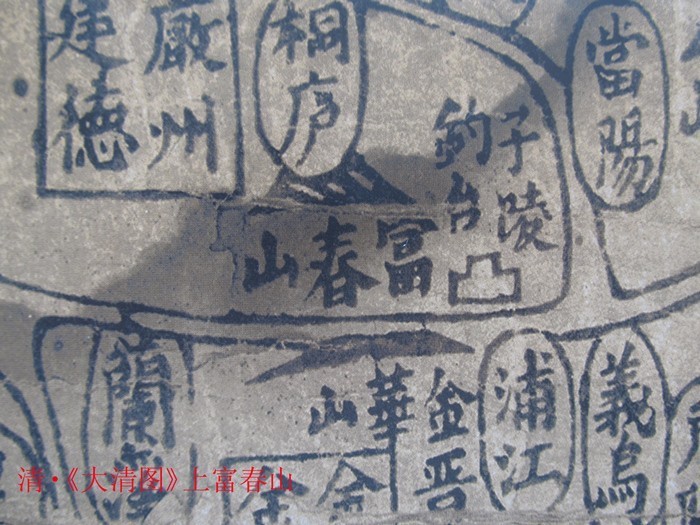 嚴州
建德
桐庐
當陽
子陵
釣台
富春山
蘭
金華山
浦江
義烏
清·《大清图》上富春山